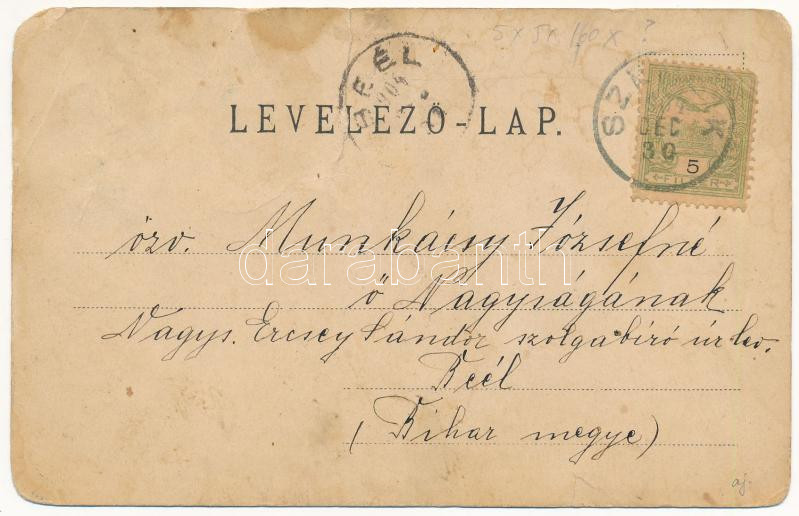 5 x 5 x 1,60 x ?
BEÉL
904
LEVELEZŐ-LAP.
DEC
30
5
FILLÉR
özv. Munkácsy Józsefné
ő Nagyságának
Nagys. Ercsey Sándor szolgabíró úr lev.
Beél
(Bihar megye)
darabanth
aj.